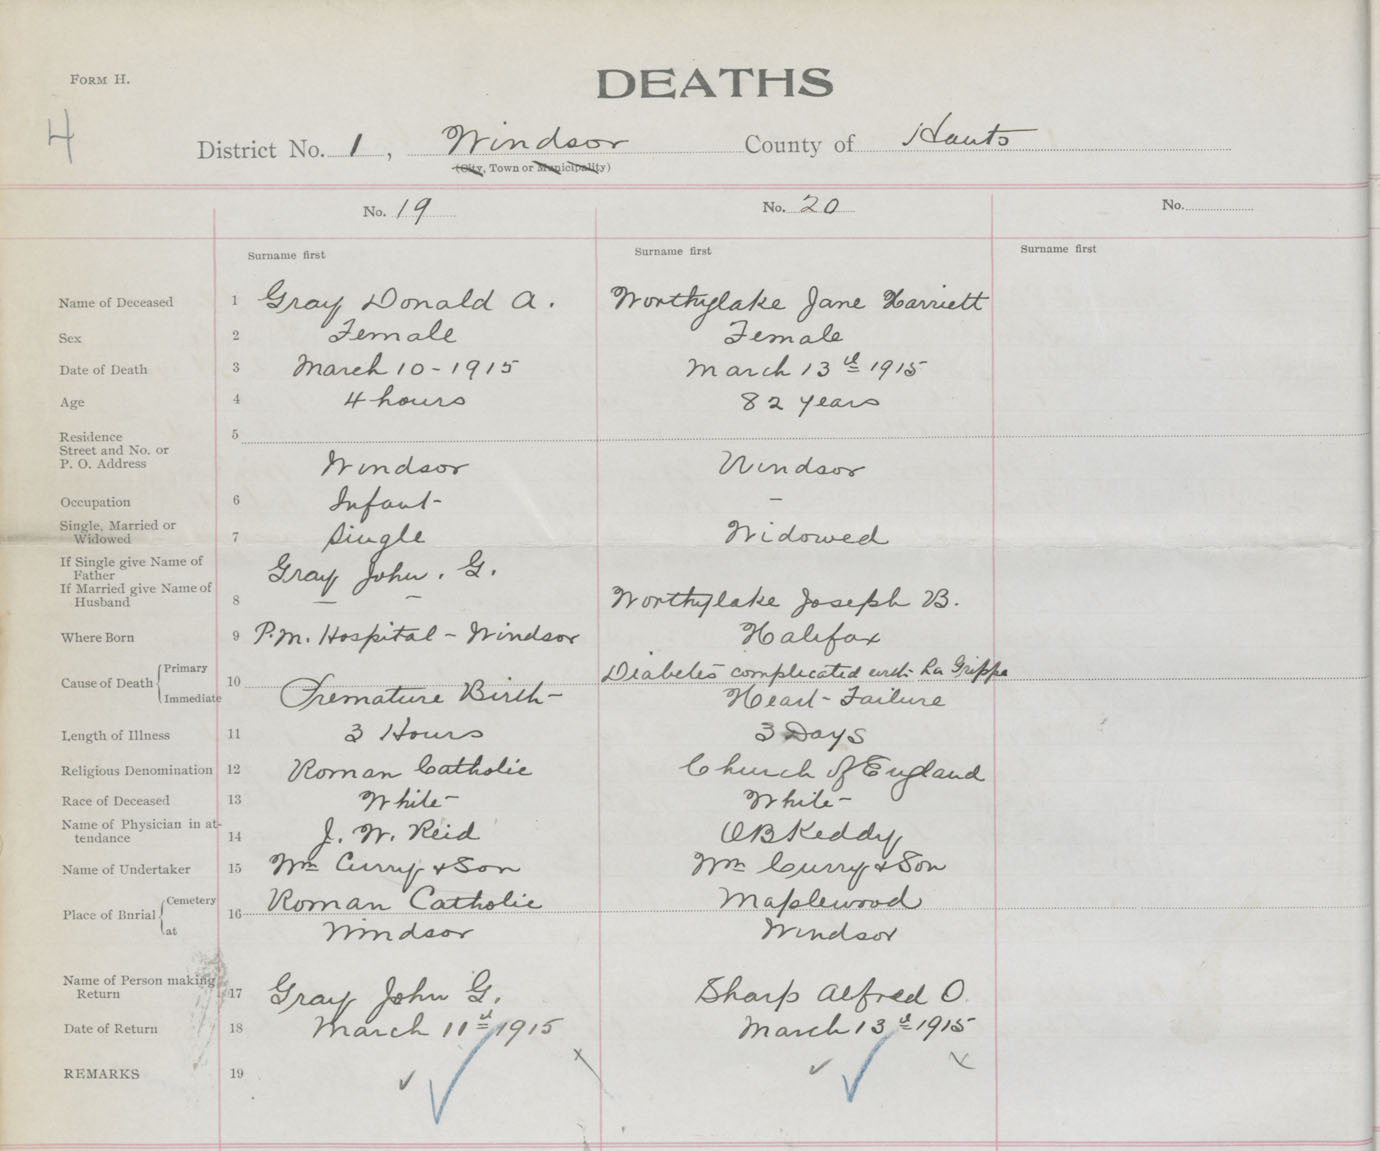 FORM H.
DEATHS
4
District No. 1, Windsor County of Hants
(City, Town or Municipality)
No. 19 No. 20 No.
Surname first Surname first Surname first
Name of Deceased 1 Gray Donald A. Worthylake Jane Harriett
Sex 2 Female Female
Date of Death 3 March 10 - 1915 March 13th 1915
Age 4 4 hours 82 years
Residence 5
Street and No. or
P. O. Address Windsor Windsor
Occupation 6 Infant - -
Single, Married or
Widowed 7 Single Widowed
If Single give Name of
Father Gray John. G.
If Married give Name of
Husband 8 — - Worthylake Joseph B.
Where Born 9 P.M. Hospital - Windsor Halifax
Cause of Death { Primary 10 Diabetes complicated with La Grippe
Immediate Premature Birth - Heart - Failure
Length of Illness 11 3 Hours 3 Days
Religious Denomination 12 Roman Catholic Church of England
Race of Deceased 13 White - White -
Name of Physician in at-
tendance 14 J. W. Reid O B Keddy
Name of Undertaker 15 Wm Curry & Son Wm Curry & Son
Place of Burial { Cemetery 16 Roman Catholic Maplewood
at Windsor Windsor
Name of Person making
Return 17 Gray John G. Sharp Alfred O.
Date of Return 18 March 11th 1915 March 13th 1915
REMARKS 19